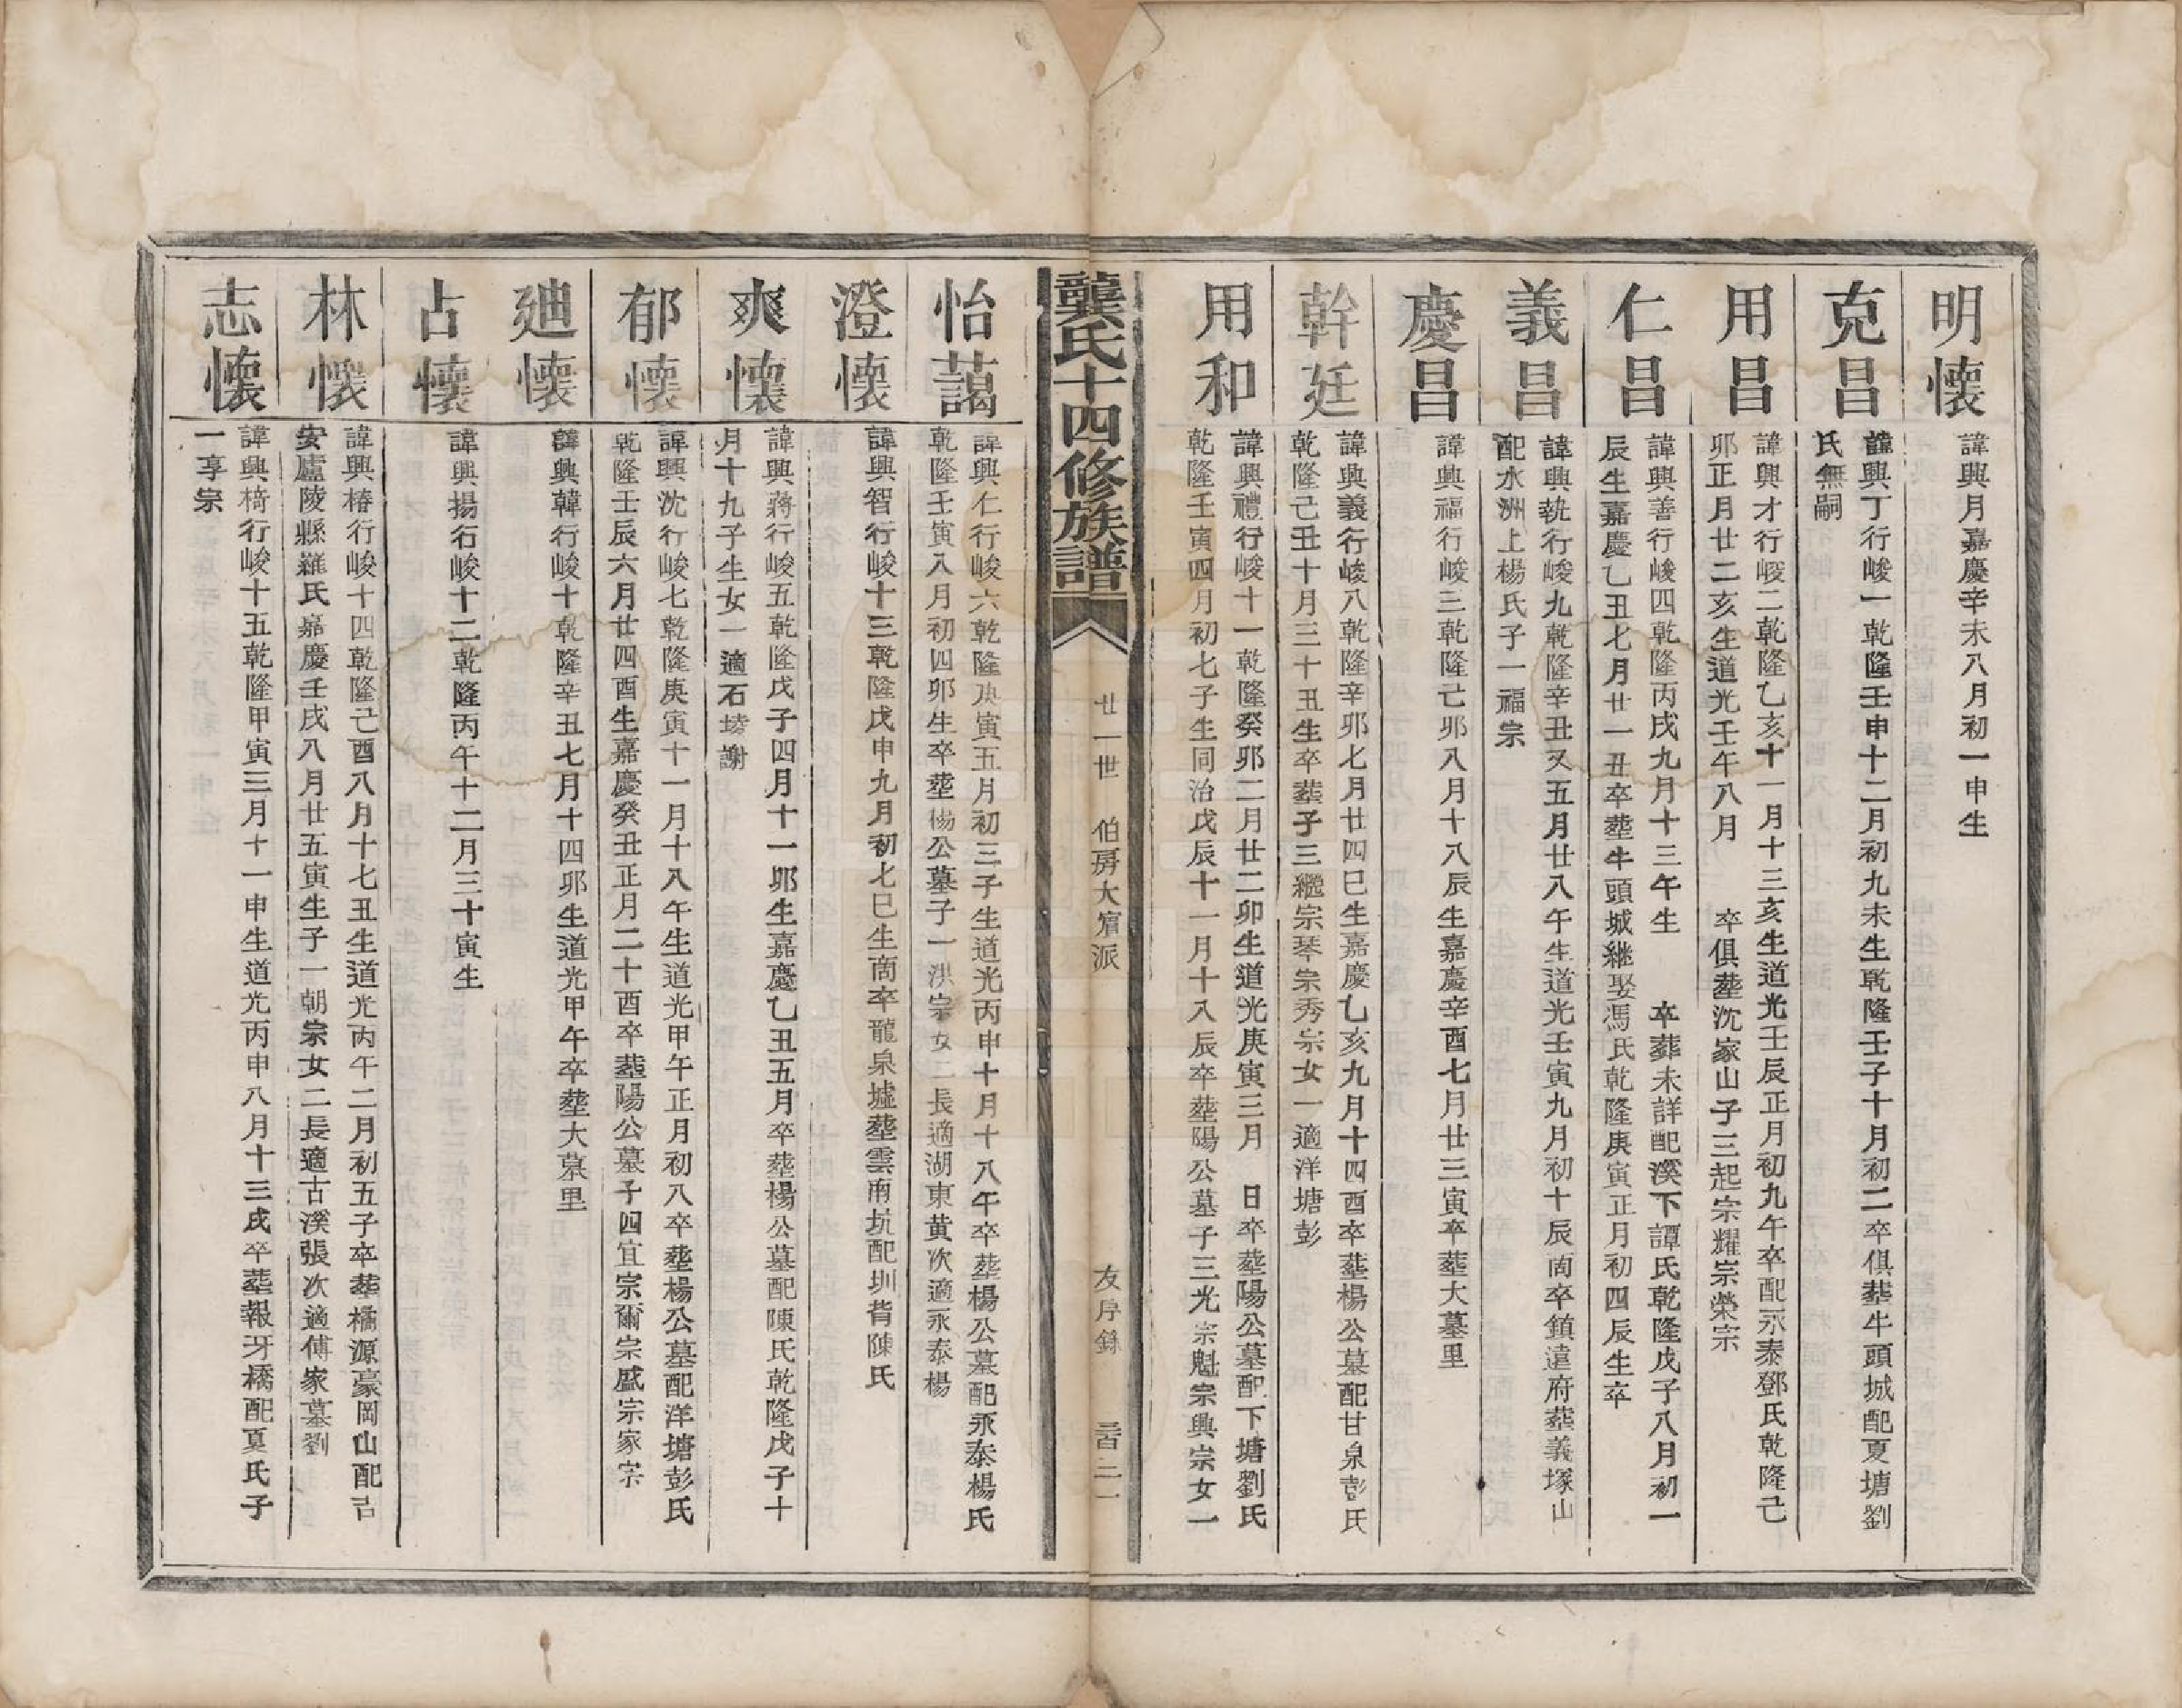 明懷
諱興月嘉慶辛未八月初一申生
克昌
諱興丁行峻一乾隆壬申十二月初九未生乾隆壬子十月初二卒俱塟牛頭城配夏塘劉
氏無嗣
用昌
諱興才行峻二乾隆乙亥十一月十三亥生道光壬辰正月初九午卒配永泰鄧氏乾隆己
卯正月廿二亥生道光壬午八月　卒俱塟沈家山子三起宗耀宗榮宗
仁昌
諱興善行峻四乾隆丙戌九月十三午生　卒葬未詳配溪下譚氏乾隆戊子八月初一
辰生嘉慶乙丑七月廿一丑卒塟牛頭城継娶馮氏乾隆庚寅正月初四辰生卒
義昌
諱興執行峻九乾隆辛丑又五月廿八午生道光壬寅九月初十辰時卒鎮遠府塟義塚山
配水洲上楊氏子一福宗
慶昌
諱興福行峻三乾隆己卯八月十八辰生嘉慶辛酉七月廿三寅卒塟大墓里
幹廷
諱興義行峻八乾隆辛卯七月廿四巳生嘉慶乙亥九月十四酉卒塟楊公墓配甘泉彭氏
乾隆己丑十月三十丑生卒塟子三繼宗琴宗秀宗女一適洋塘彭
用和
諱興禮行峻十一乾隆癸卯二月廿二卯生道光庚寅三月　日卒塟陽公墓配下塘劉氏
乾隆壬寅四月初七子生同治戊辰十一月十八辰卒塟陽公墓子三光宗魁宗興宗女一
龔氏十四修族譜
廿一世　伯房大㾗派
友序錄
三百二一
怡藹
諱興仁行峻六乾隆庚寅五月初三子生道光丙申十月十八午卒塟楊公墓配永泰楊氏
乾隆壬寅八月初四卯生卒塟楊公墓子一洪宗女二長適湖東黄次適永泰楊
澄懷
諱興智行峻十三乾隆戊申九月初七巳生啇卒龍泉墟塟雲南坑配圳背陳氏
爽懷
諱興蔣行峻五乾隆戊子四月十一卯生嘉慶乙丑五月卒塟楊公墓配陳氏乾隆戊子十
月十九子生女一適石塝謝
郁懷
諱興沈行峻七乾隆庚寅十一月十八午生道光甲午正月初八卒塟楊公墓配洋塘彭氏
乾隆壬辰六月廿四酉生嘉慶癸丑正月二十酉卒塟陽公墓子四宜宗爾宗盛宗家宗
廸懷
諱興韓行峻十乾隆辛丑七月十四卯生道光甲午卒塟大墓里
占懷
諱興揚行峻十二乾隆丙午十二月三十寅生
林懷
諱興椿行峻十四乾隆己酉八月十七丑生道光丙午二月初五子卒塟橘源豪岡山配吉
安廬陵縣羅氏嘉慶壬戌八月廿五寅生子一朝宗女二長適古溪張次適傅家墓劉
志懷
諱興椅行峻十五乾隆甲寅三月十一申生道光丙申八月十三戌卒塟報牙橋配夏氏子
一享宗